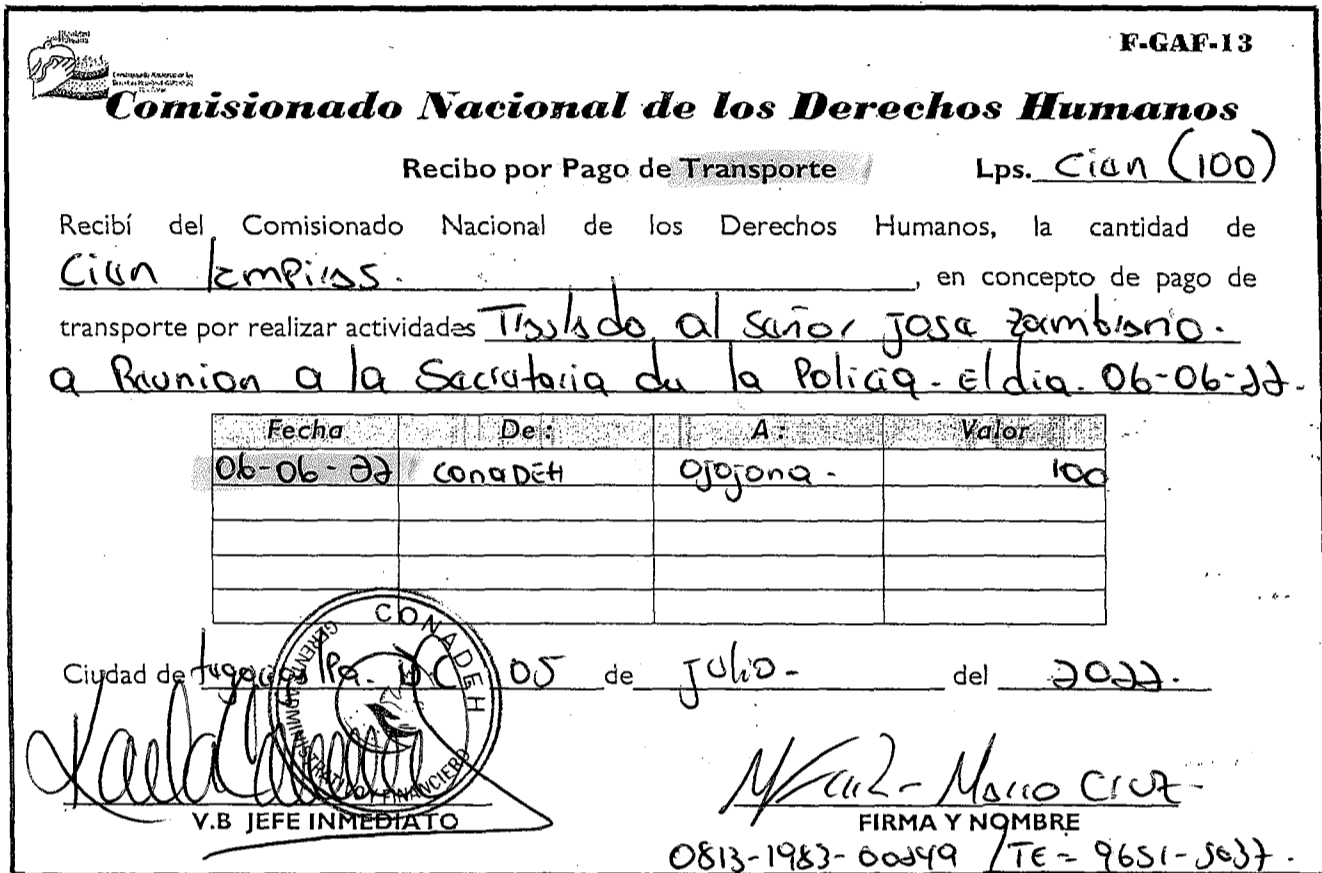 F-GAF-13
Comisionado Nacional de los Derechos Humanos
Recibo por Pago de Transporte Lps. Cien (100)
Recibí del Comisionado Nacional de los Derechos Humanos, la cantidad de
Cien lempiras. , en concepto de pago de
transporte por realizar actividades Traslado al señor Jose Zambrano.
a Reunion a la Secretaria de la Policia. El dia. 06-06-22.
Fecha De: A: Valor
06-06-22 CONADEH Ojojona - 100
CONADEH
GERENTE ADMINISTRATIVO Y FINANCIERO
Ciudad de tegucigalpa. DC 05 de Julio - del 2022.
Marco Cruz -
V.B JEFE INMEDIATO FIRMA Y NOMBRE
0813-1983- / TE =